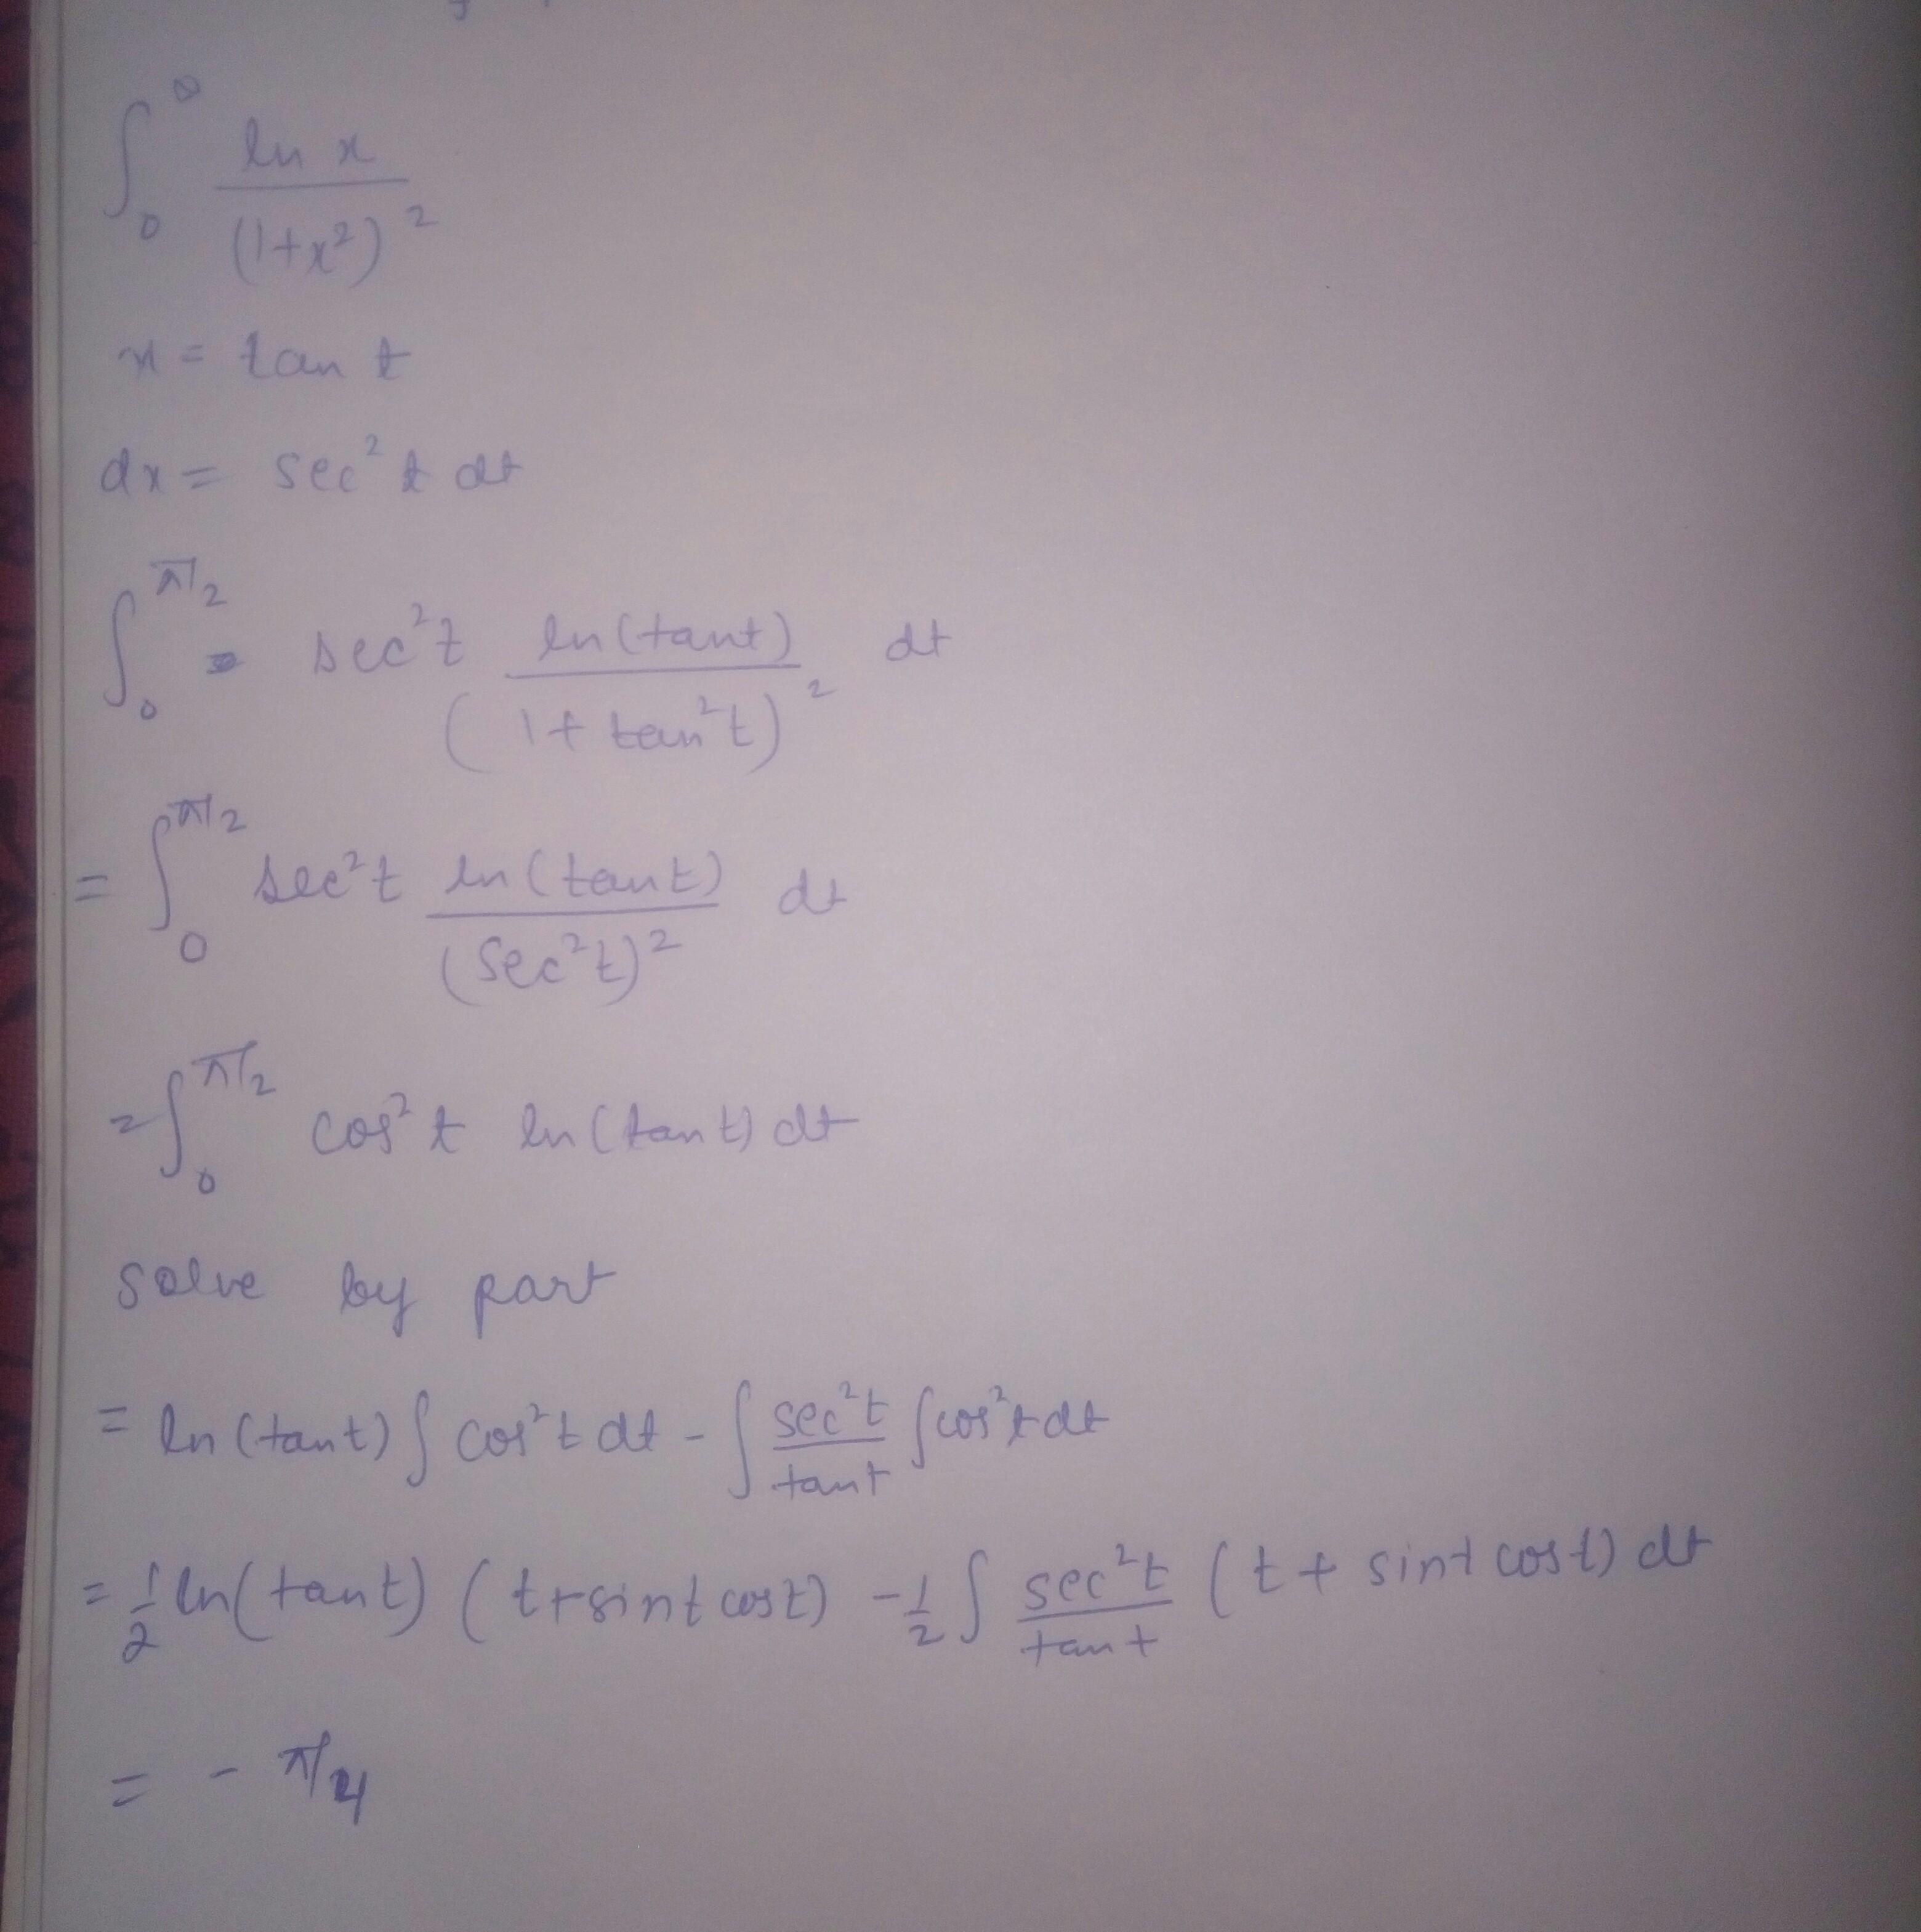 ∫₀^∞ ln x / (1+x²)²
x = tan t
dx = sec² t dt
∫₀^π/2 = sec² t ln(tan t) / (1 + tan² t)² dt
= ∫₀^π/2 sec² t ln(tan t) / (sec² t)² dt
= ∫₀^π/2 cos² t ln(tan t) dt
solve by part
= ln(tan t) ∫ cos² t dt - ∫ sec² t / tan t ∫ cos² t dt
= 1/2 ln(tan t) (t + sin t cos t) - 1/2 ∫ sec² t / tan t (t + sin t cos t) dt
= - π/4